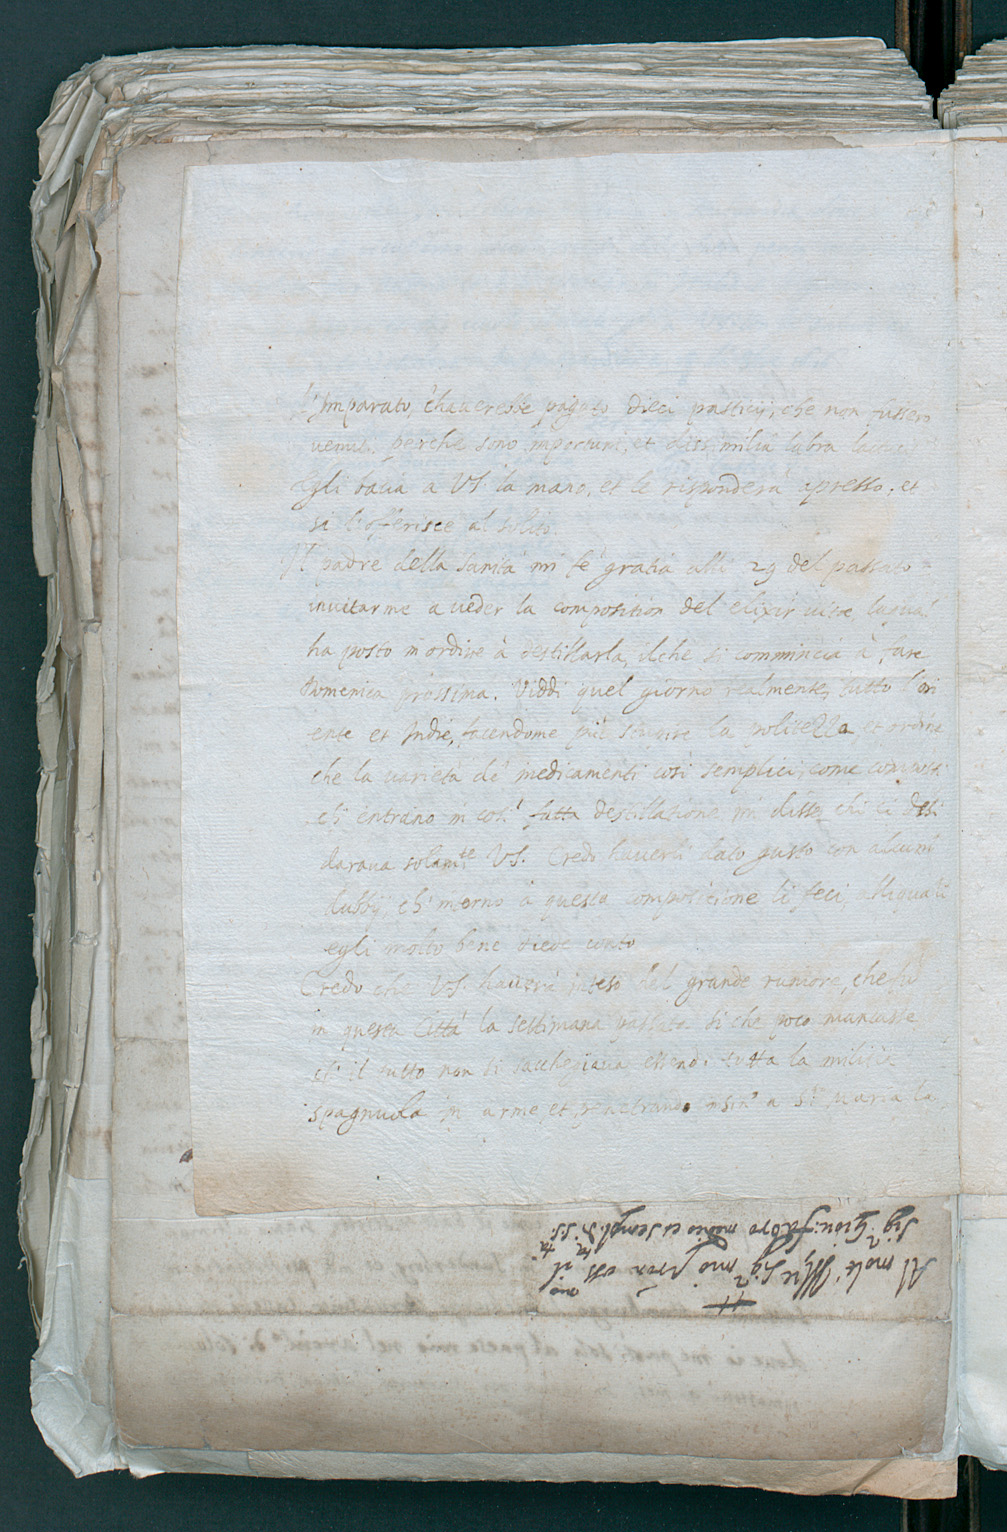 l'Imparato, c'haverebbe pagato dieci pasticij, che non fussero
venuti, perche sono importuni, et
Egli bacia a VS. la mano, et le risponderà presto, et
si l'offerisce al solito.
Il padre della sanità mi fè gratia alli 29 del passato
invitarme a veder la composition del elixir vitae, laqual
ha posto in ordine à destillarla, ilche si commincia à fare
Domenica prossima. Viddi quel giorno realmente, tutto l'ori
ente et Indie, facendome più stupire la politezza, et ordine
che la varietà de' medicamenti così semplici, come composti
ch' entrano in così fatta destillatione mi disse, chi ci desi
darava solamte VS. Credo haverli dato gusto con alcuni
dubbij, ch' intorno à questa compositione li feci, alliquali
egli molto bene diede conto
Credo che VS. haverà inteso del grande rumore, che fù
in questa Città la settimana passata si che poco mancasse
ch' il tutto non si saccheggiava essendo tutta la militia
spagnuola in arme, et penetrando insino a Sta Maria la
Al molto Illre Sigr mio
Sigr Giov: Fabro medico et sempl. di S. S.tà